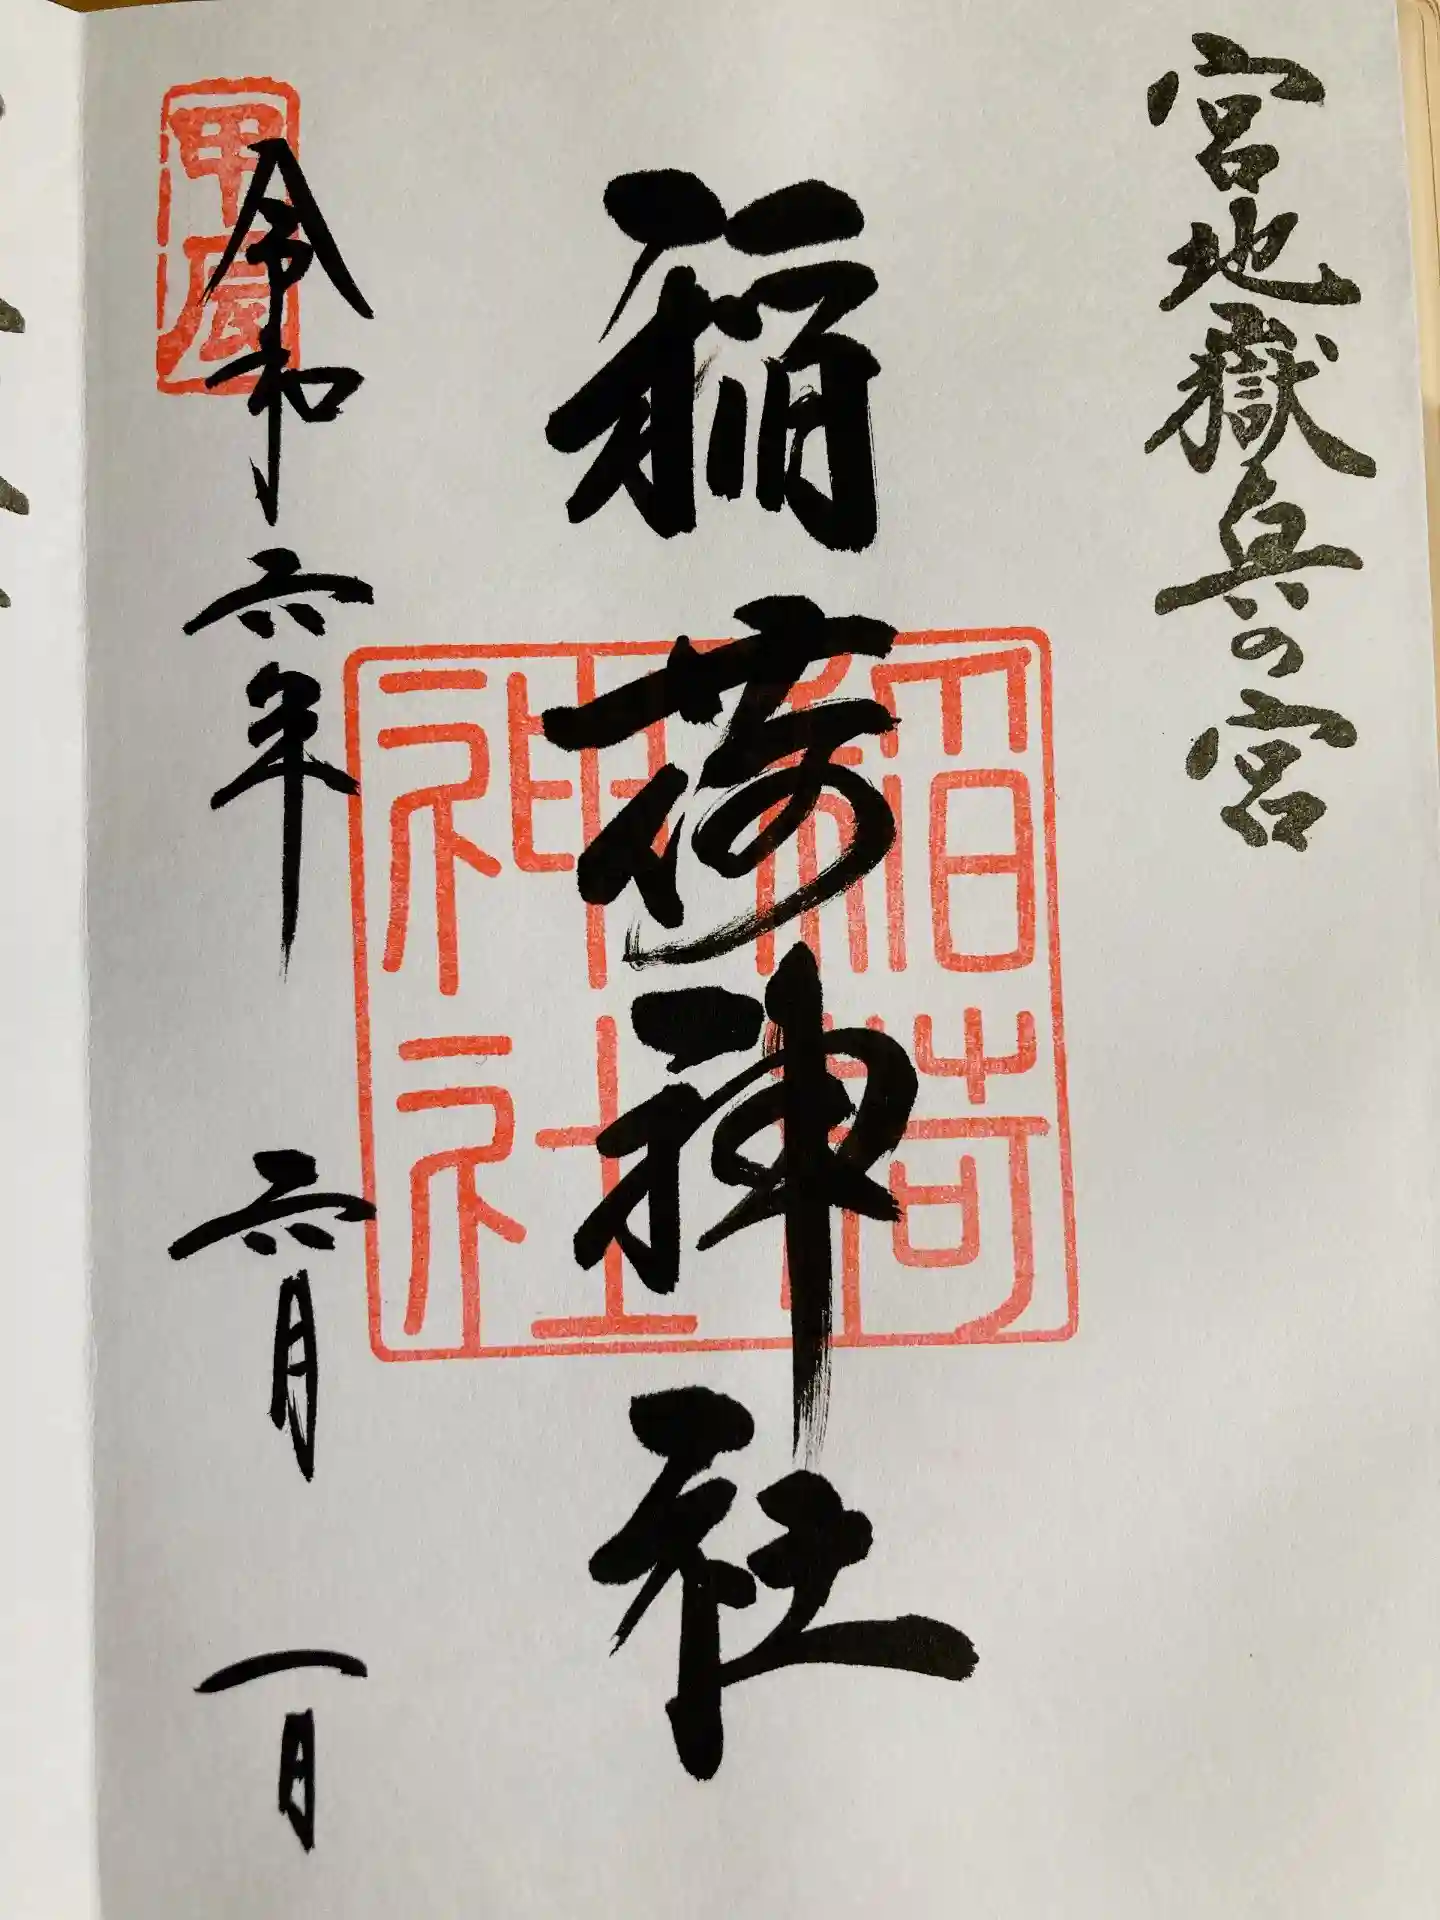 宮地嶽奥の宮
稲荷神社
稲荷神社
令和六年 六月 一日
甲辰